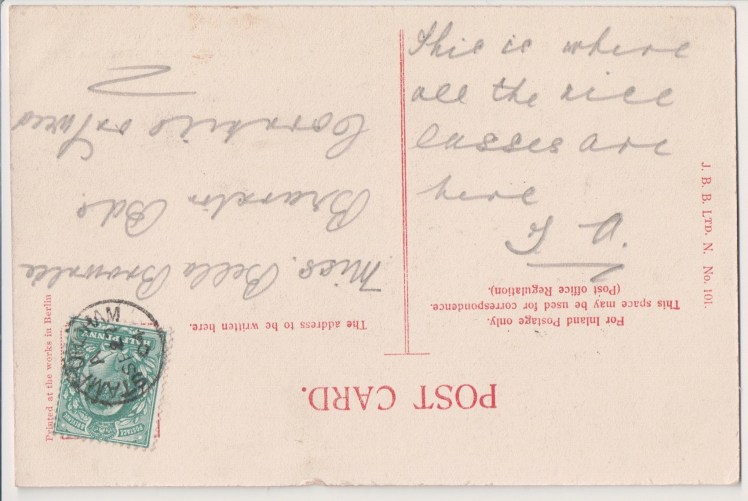 POST CARD.
For Inland Postage only.
This space may be used for correspondence.
(Post office Regulation).
The address to be written here.
This is where
all the nice
lasses are
here
Miss. Bella Brownlee
Branxton Bds.
Cornhill on Tweed
J. B. B. LTD. N. No. 101.
Printed at the works in Berlin
STAMFORDHAM
HALFPENNY
POSTAGE